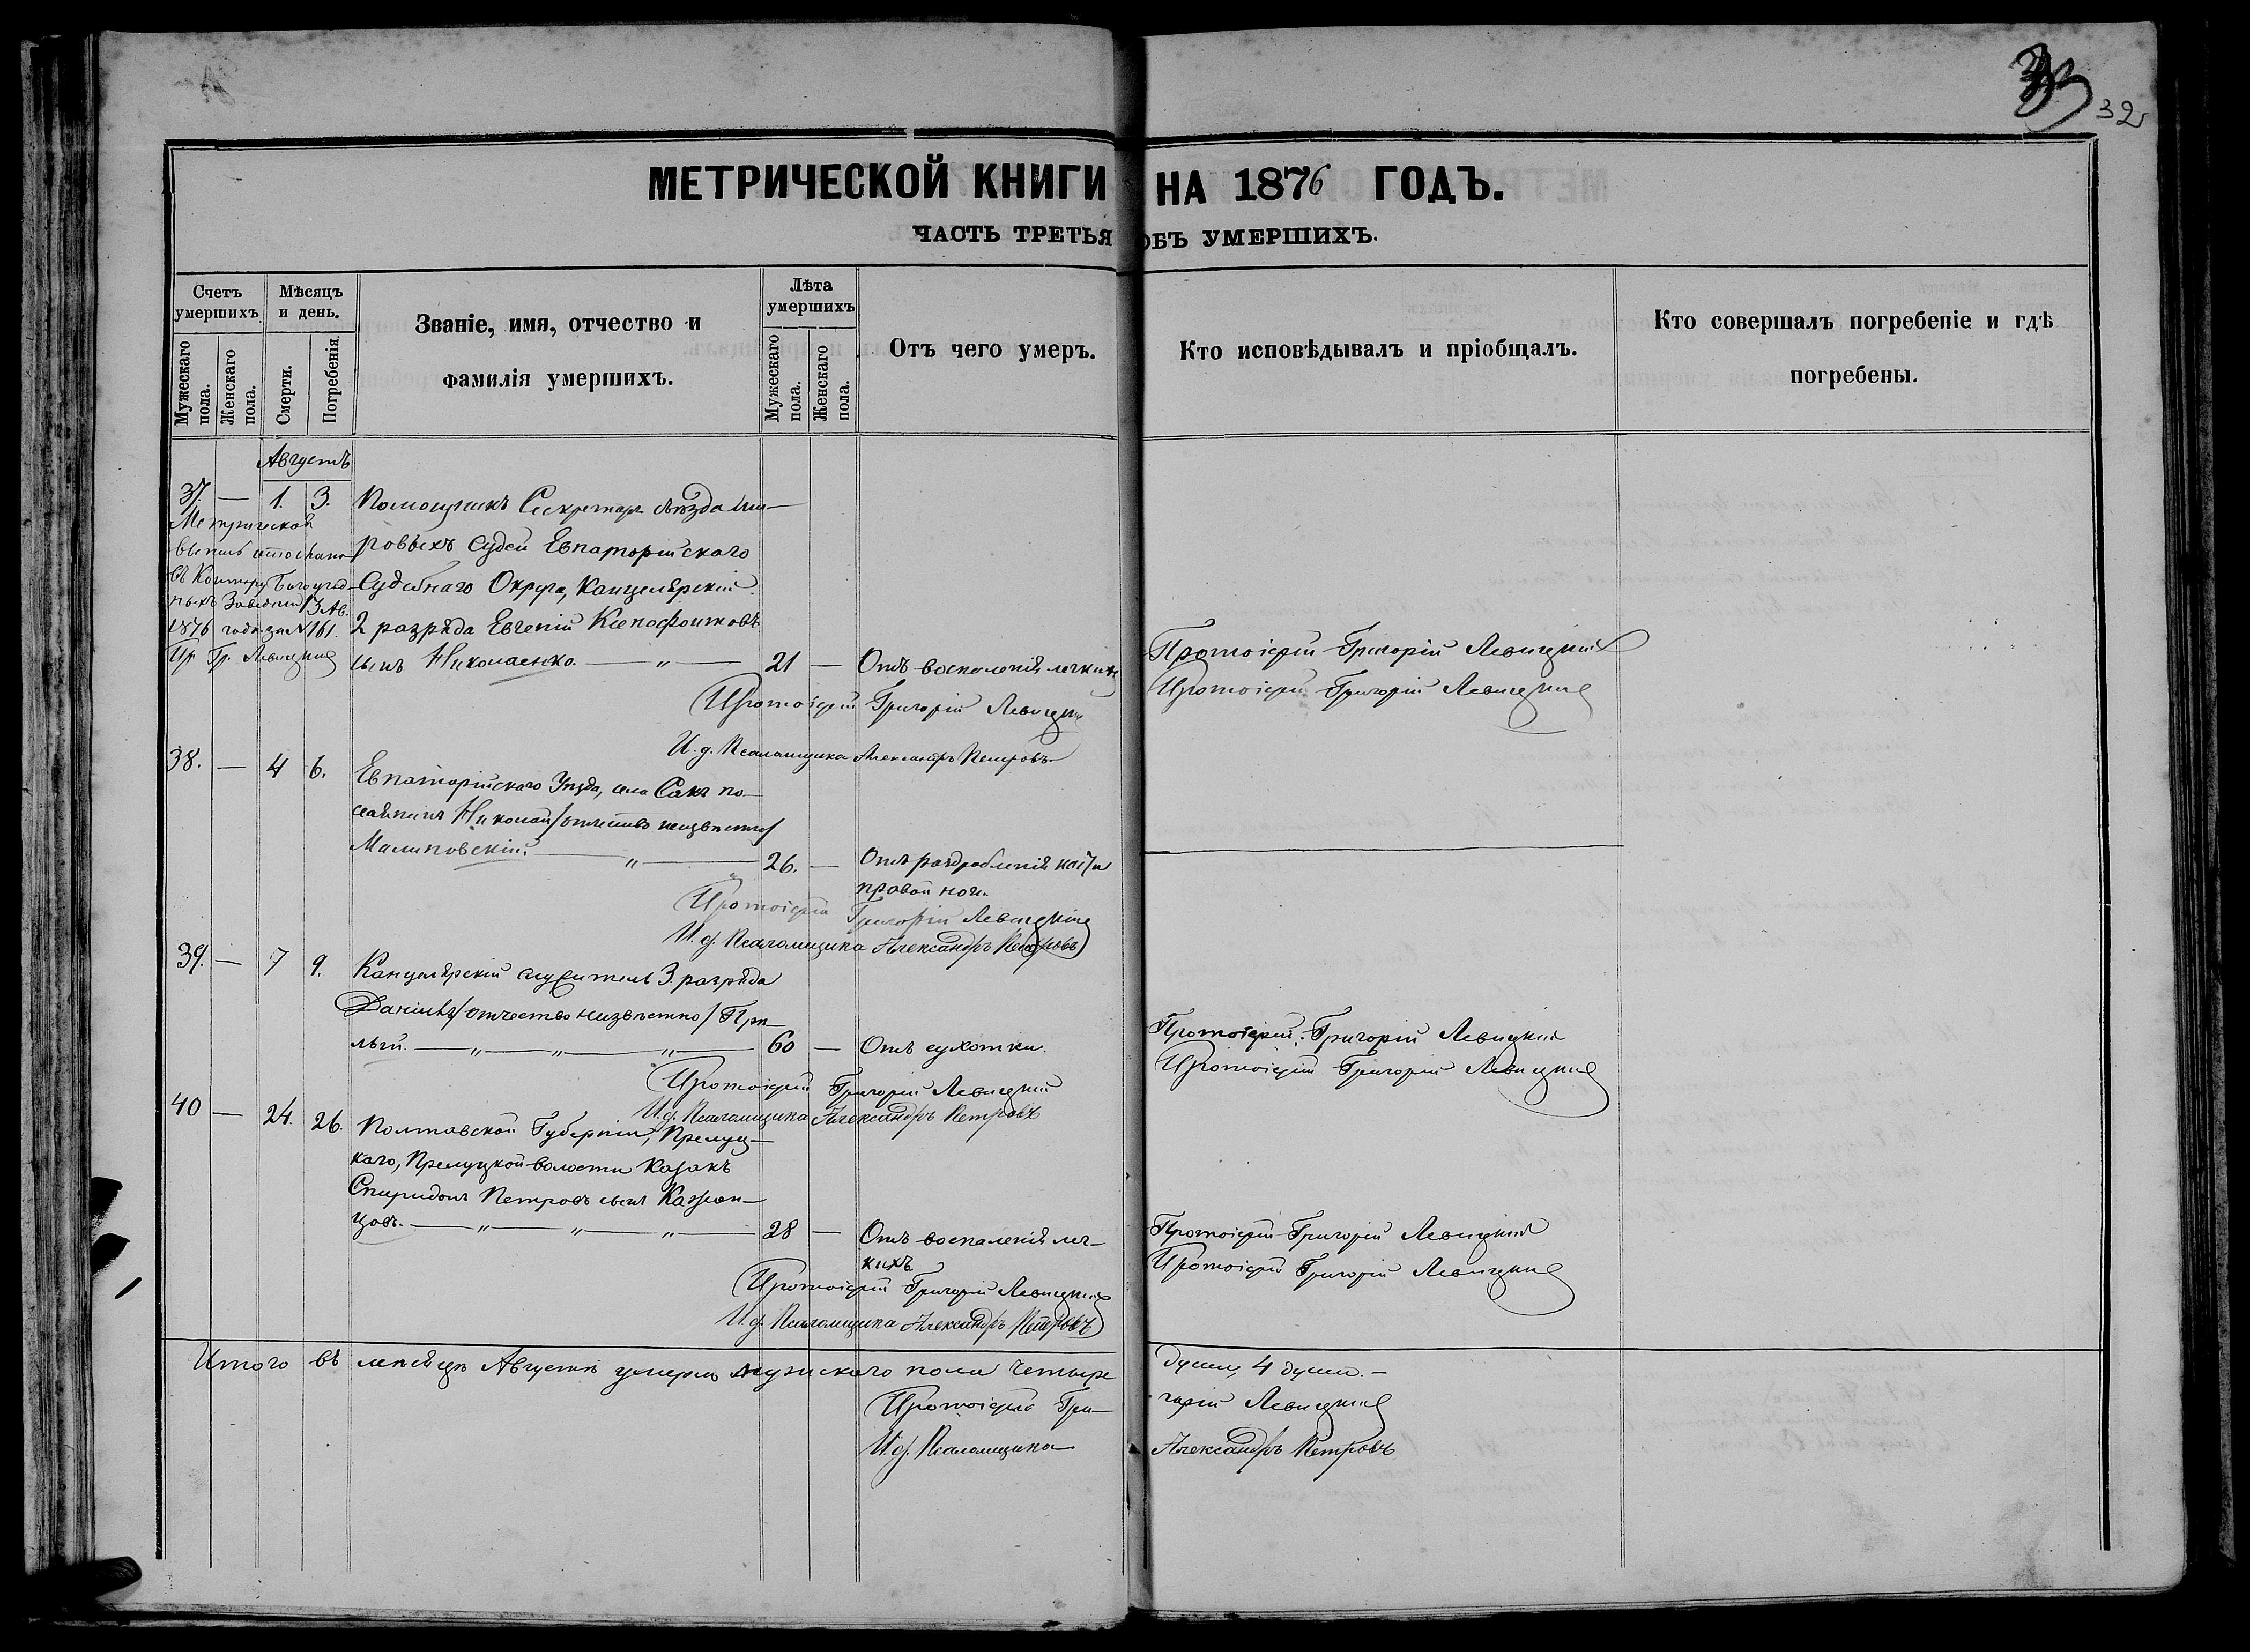 32
МЕТРИЧЕСКОЙ КНИГИ НА 1876 ГОДЪ.
ЧАСТЬ ТРЕТЬЯ ОБЪ УМЕРШИХЪ.
Счетъ умершихъ.
Мужескаго пола.
Женскаго пола.
Мѣсяцъ и день.
Смерти.
Погребенія.
Званіе, имя, отчество и
фамилія умершихъ.
Лѣта умершихъ
Мужескаго пола.
Женскаго пола.
Отъ чего умеръ.
Кто исповѣдывалъ и пріобщалъ.
Кто совершалъ погребеніе и гдѣ
погребены.
Августъ
37. — 1. 3. Помощникъ Секретаря съѣзда Ми—
ровыхъ Судей Евпаторійскаго
Судебнаго Округа, Канцелярскій
2 разряда Евгеній Ксенофонтовъ
сынъ Николаенко. — „ — 21 — Отъ воспаленія легкихъ
Метрическая
1876 года за № 161.
Пр. Гр. Левицкий
Протоіерей Григорій Левицкій
Протоіерей Григорій Левицкий
Протоіерей Григорій Левицкий
И. д. Псаломщика Александръ Петровъ
38. — 4 6. Евпаторійскаго Уѣзда, села Саки по—
селянинъ Николай /отчество неизвѣстно/
Малиновскій. — „ — 26. — Отъ раздробленія кости
правой ноги.
Протоіерей Григорій Левицкій
И. д. Псаломщика Александръ Петровъ
39. — 7 9. Канцелярскій служитель 3. разряда
Даніилъ /отчество неизвѣстно/
— „ — „ — „ — 60 — Отъ сухотки.
Протоіерей Григорій Левицкій
Протоіерей Григорій Левицкий
Протоіерей Григорій Левицкий
И. д. Псаломщика Александръ Петровъ
40 — 24. 26. Полтавской Губерніи, Прелуц—
каго, Прелуцкой волости Казакъ
Спиридонъ Петровъ сынъ
цовъ. — „ — „ — „ — 28 — Отъ воспаленія лег—
кихъ
Протоіерей Григорій Левицкій
Протоіерей Григорій Левицкий
Протоіерей Григорій Левицкий
И. д. Псаломщика Александръ Петровъ
Итого въ мѣсяцѣ Августѣ умерло мужскаго пола четыре души, 4 души. —
Протоіерей Гри—горій Левицкий
И. д. Псаломщика Александръ Петровъ